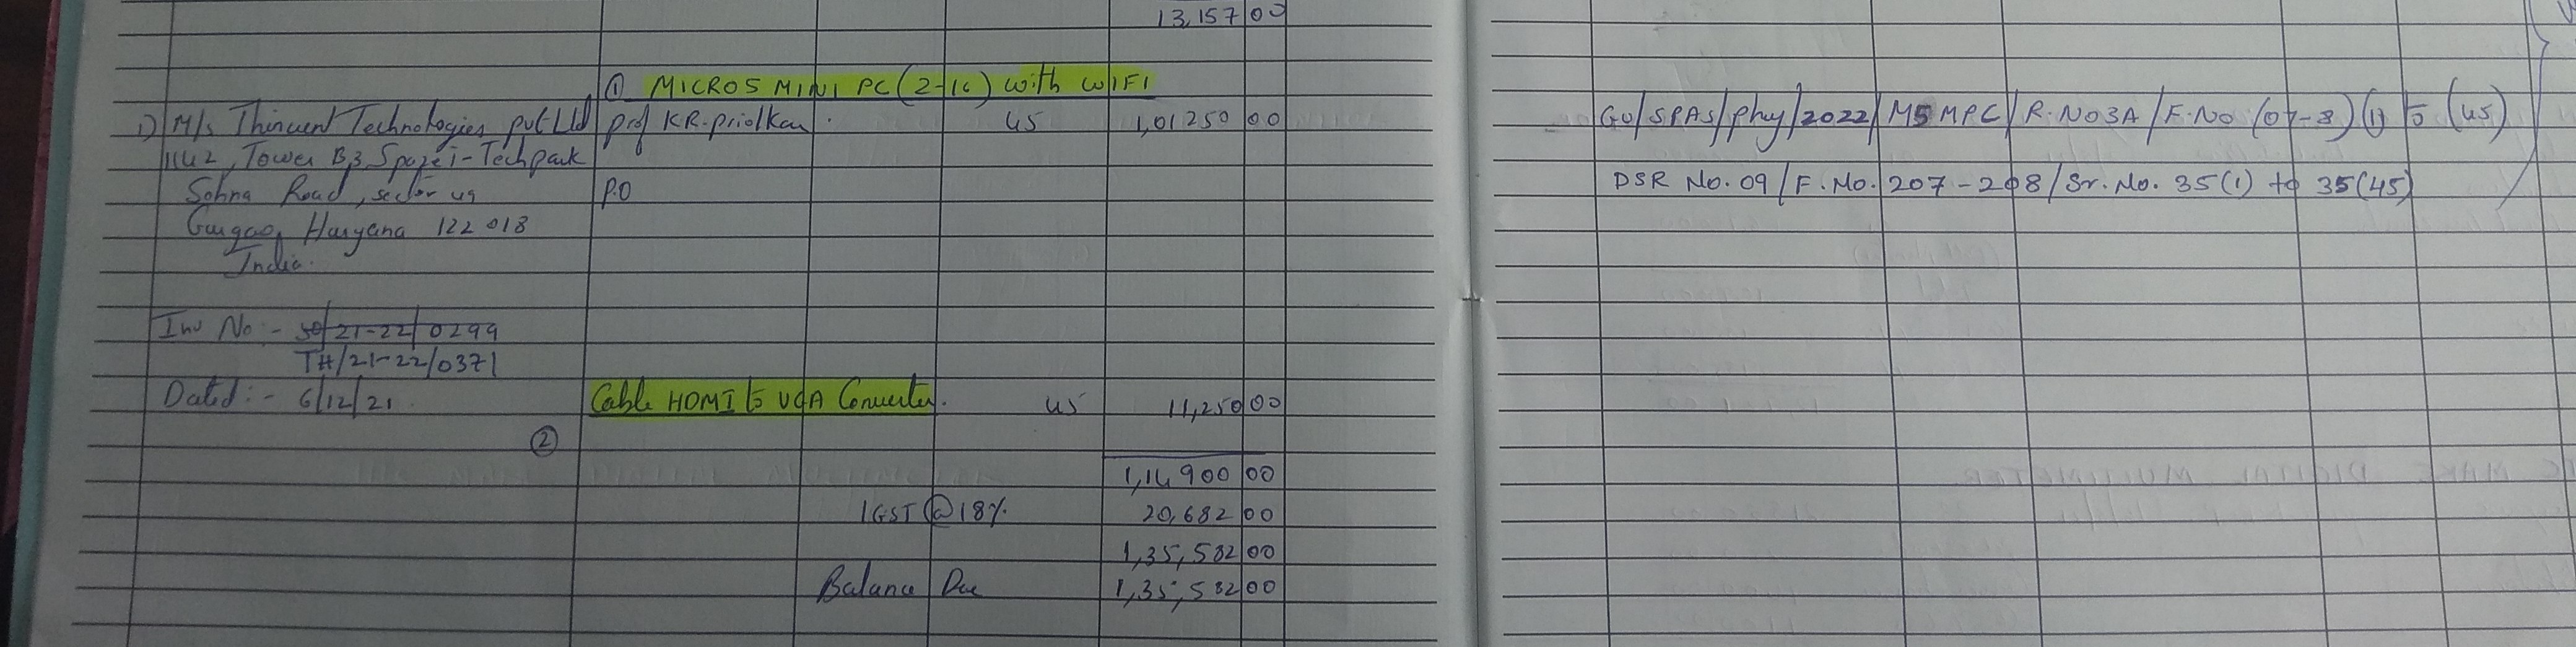 13,157 00
① MICRO5 MINI PC (2-1c) with WIFI
1) M/s Thincent Technologies pvt Ltd prof KR. priolkar. 45 1,01250 00
1142, Tower B3 Spazei-Techpark
Sohna Road, sector 49 P.O
Gurgao, Haryana 122 018
India.
Inv No :- 50/21-22/0299
TH/21-22/0371
Dated :- 6/12/21. Cable HDMI to VGA Converter. 45 11,250 00
②
1,14900 00
IGST @ 18% 20,682 00
1,35,582 00
Balance Due 1,35,582 00
GU/SPAS/phy/2022/M5 MPC/R.NO3A/F.NO (07-8) (1) to (45)
DSR No. 09/F.No. 207-208/Sr. No. 35(1) to 35(45)